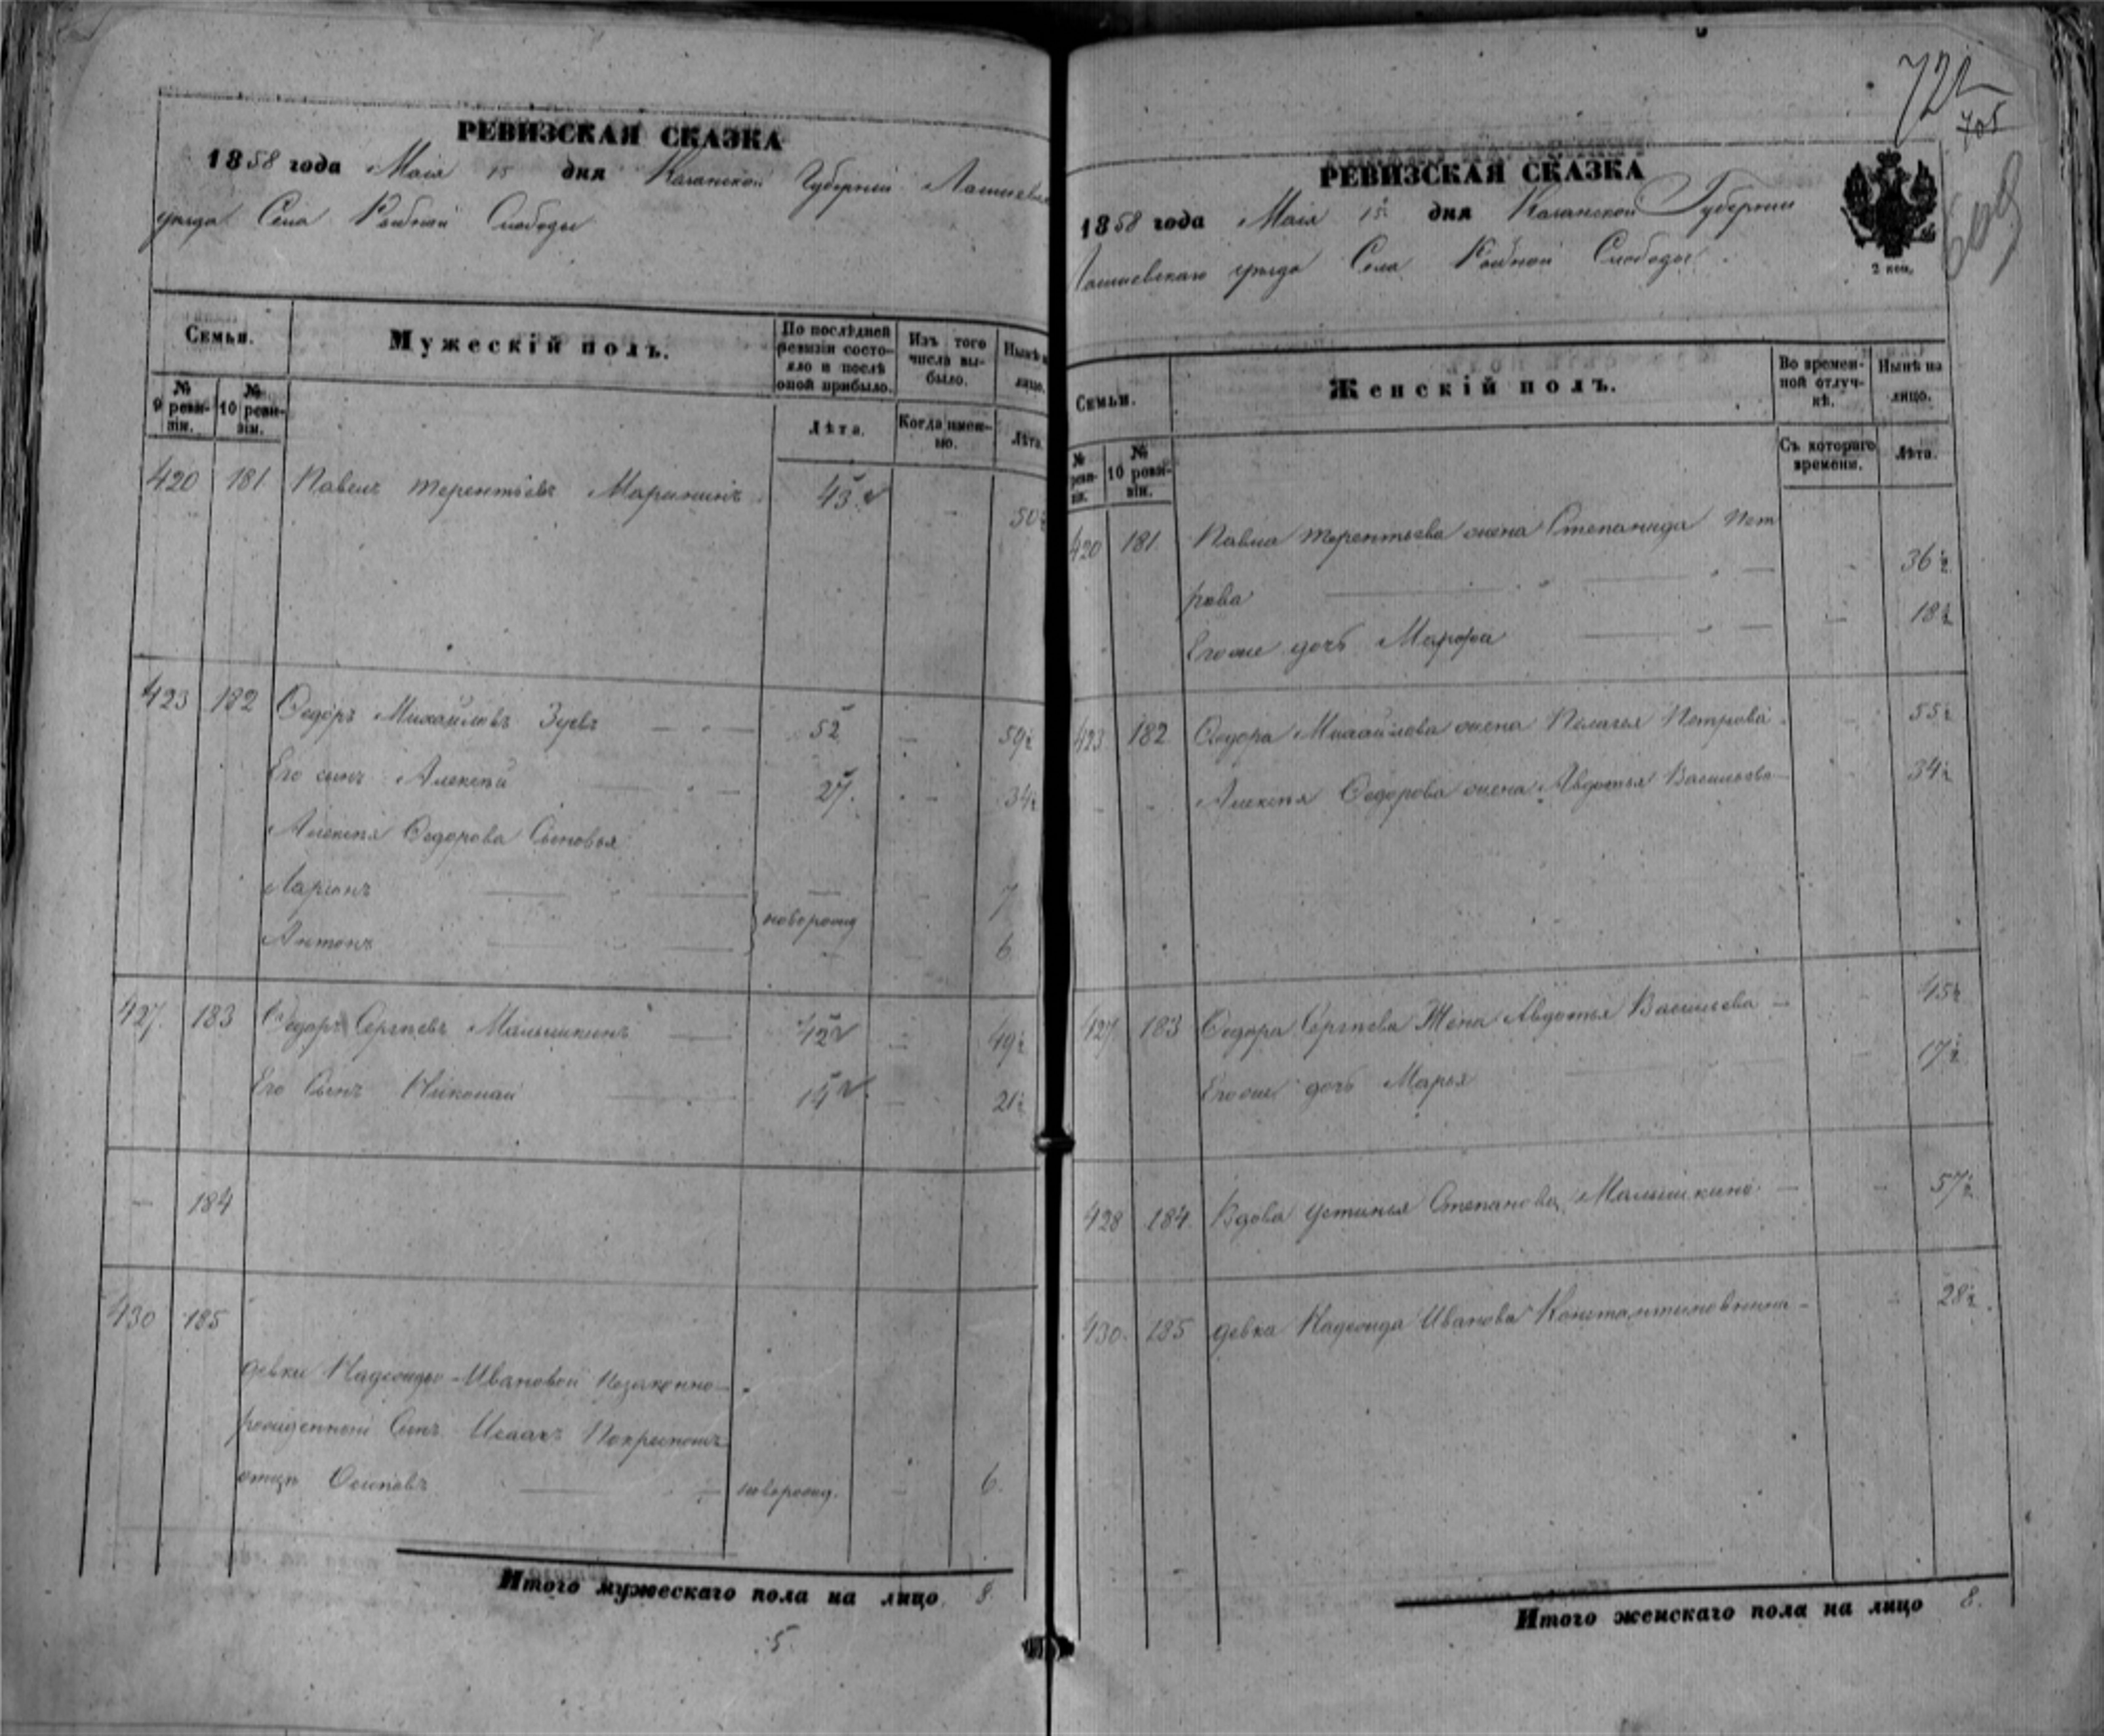 РЕВИЗСКАЯ СКАЗКА
1858 года Маія 15 дня Казанской Губерніи Лаишевск
уѣзда Села Рыбной Слободы
Семьи.
Мужескій полъ.
По послѣдней ревизіи состояло и послѣ оной прибыло.
Изъ того числа выбыло.
Нынѣ на лицо.
№ 9 ревизіи.
№ 10 ревизіи.
Лѣта.
Когда именно.
Лѣта.
420 181 Павелъ Терентьевъ Марининъ 43 50½
423 182 Ѳедоръ Михайловъ Зуевъ 52 59½
Его сынъ Алексѣй 27. 34½
Алексѣя Ѳедорова Сыновья
Ларіонъ 7
новорожд
Антонъ 6
427 183 Ѳедоръ Сергѣевъ Малышкинъ 42 49½
Его Сынъ Николай 14 21½
184
430 185
девки Надежды Ивановой Незаконно-
рожденной Сынъ Исаакъ По крестному
отцу Осиповъ новорожд. 6.
Итого мужескаго пола на лицо 8
5
722
705
РЕВИЗСКАЯ СКАЗКА
1858 года Маія 15 дня Казанской Губерніи
Лаишевскаго уѣзда Села Рыбной Слободы
2 коп.
Семьи.
Женскій полъ.
Во временной отлучкѣ.
Нынѣ на лицо.
№ реви- зіи.
№ 10 ревизіи.
Съ котораго времени.
Лѣта.
420 181. Павла Терентьева жена Степанида Пет
рова 36½
Его же дочь Марфа 18½
423 182 Ѳедора Михайлова жена Пелагея Петрова 55½
Алексѣя Ѳедорова жена Авдотья Васильева 34½
427 183 Ѳедора Сергѣева Жена Авдотья Васильева 45½
Его же дочь Марья 17½
428 184. Вдова Устинья Степанова Малышкина 57½
430. 185 девка Надежда Иванова Константиновнина 28½
Итого женскаго пола на лицо 8.